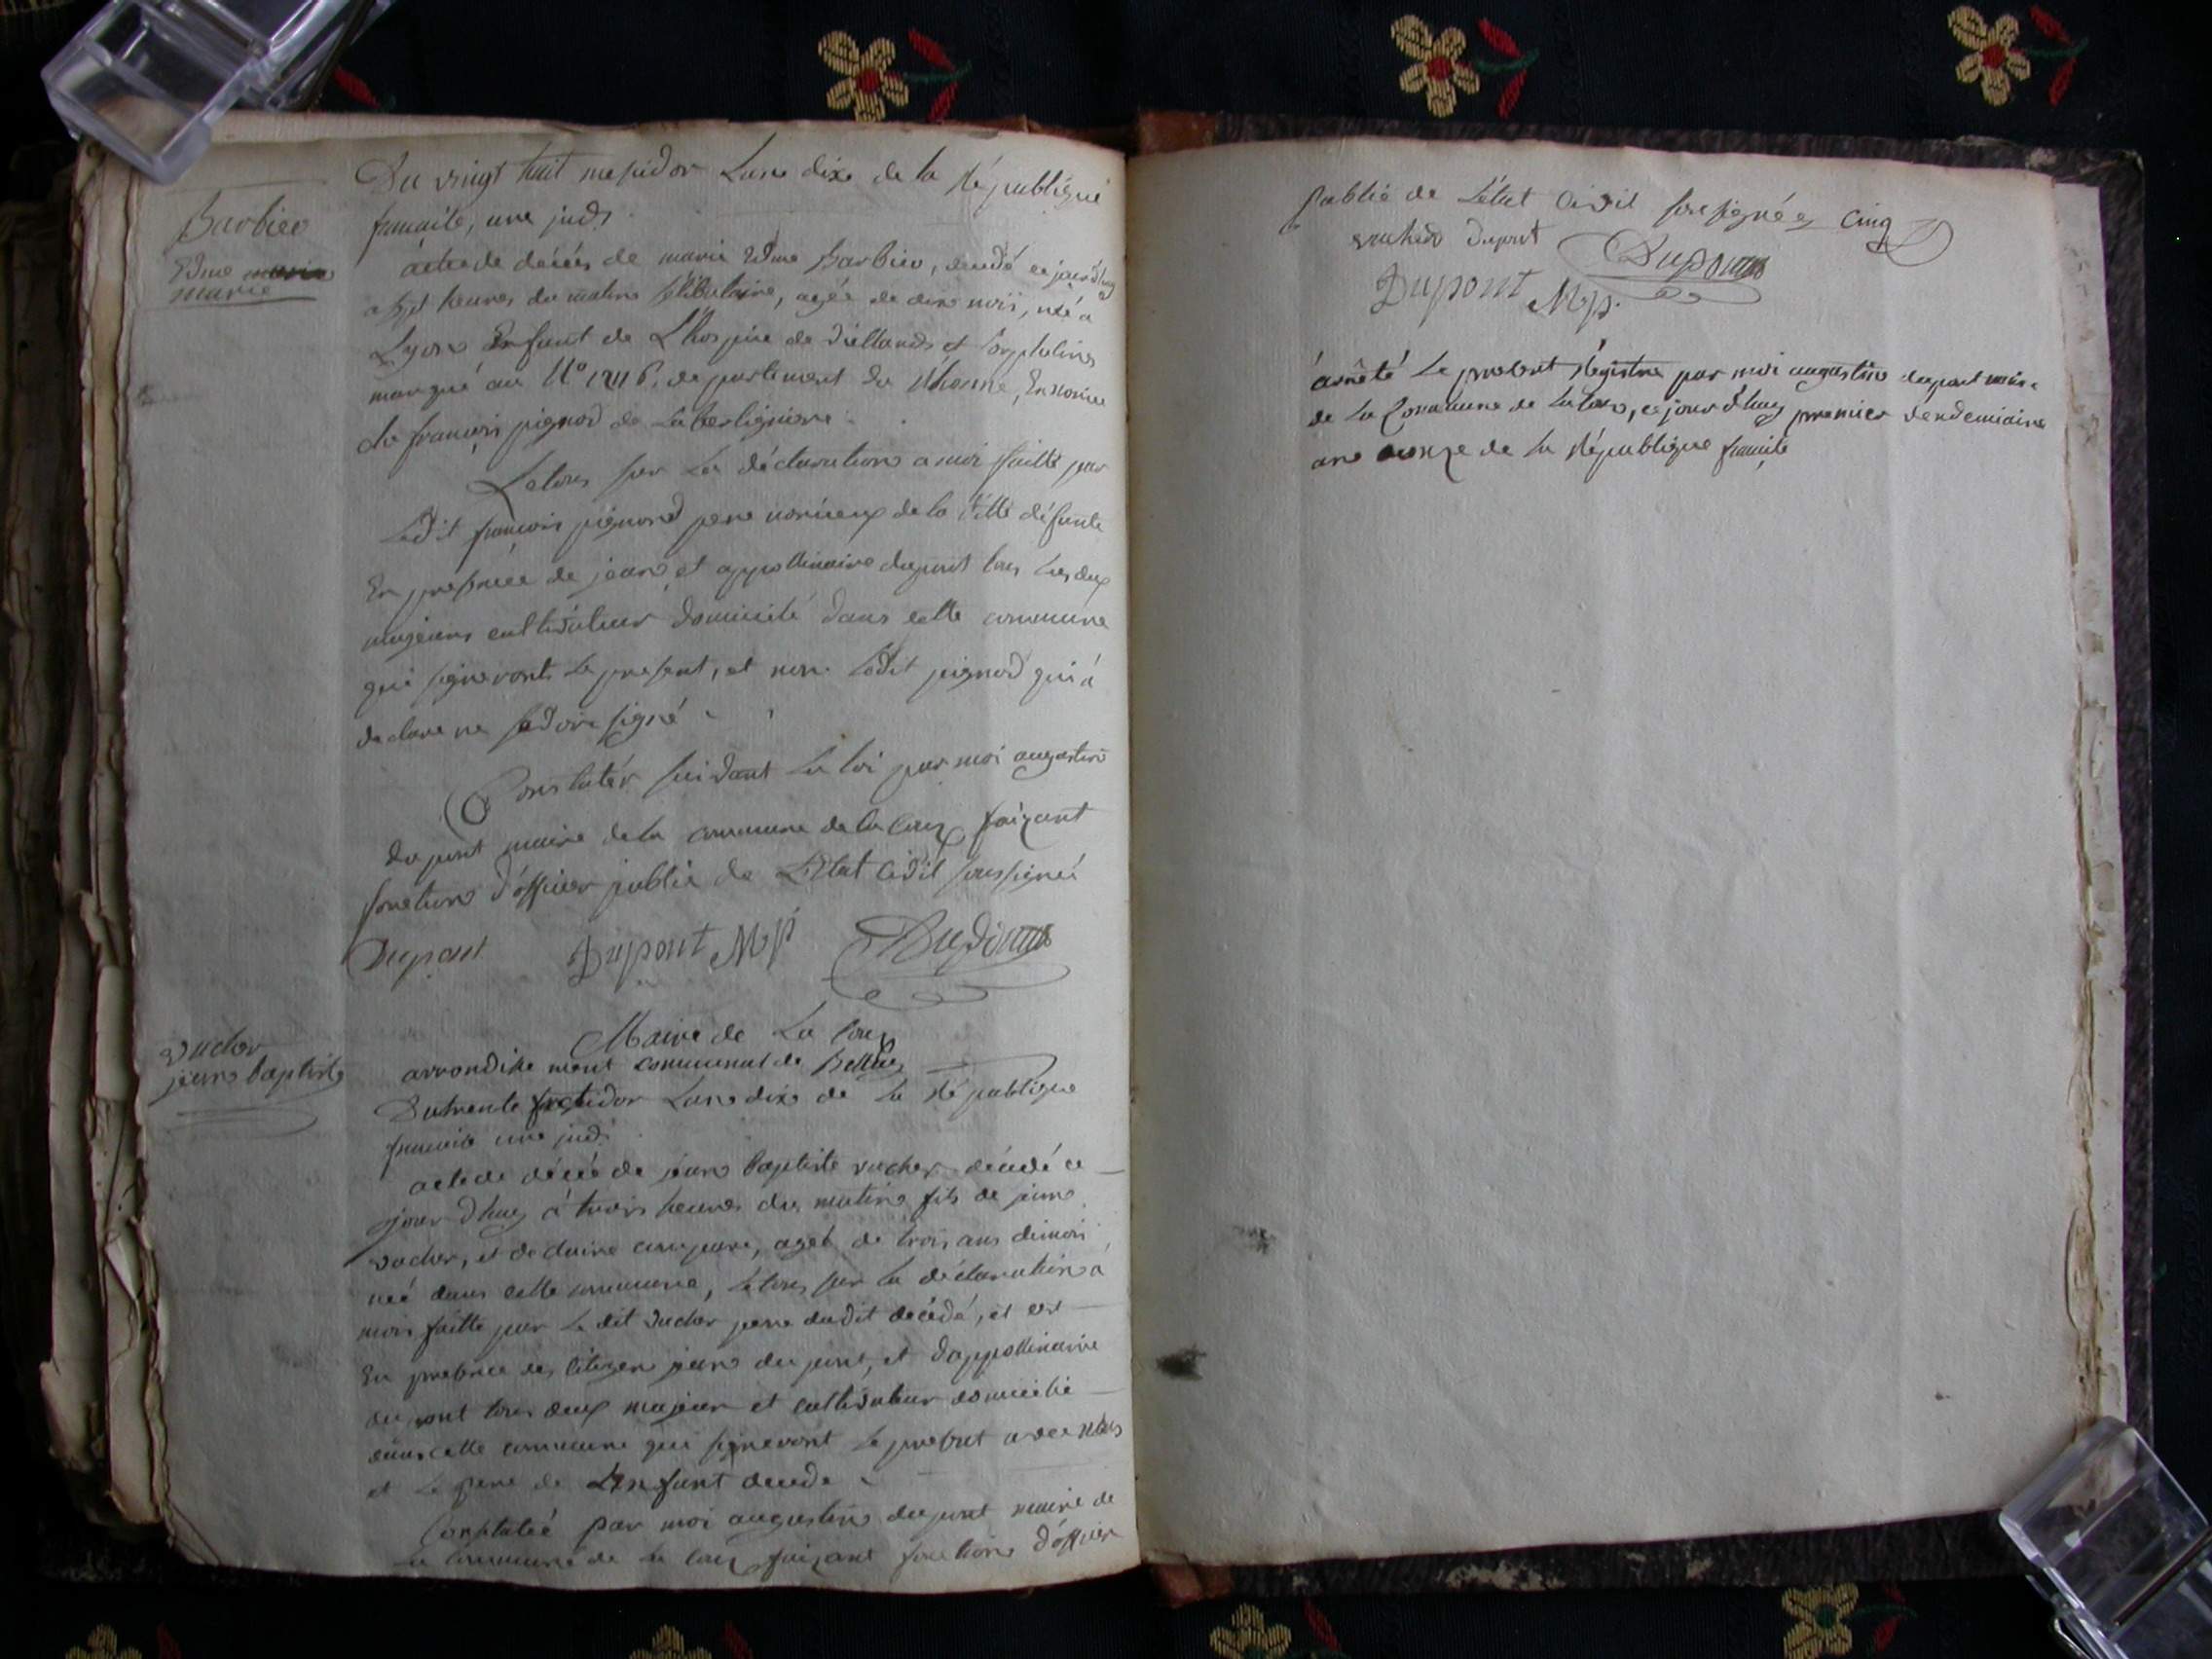 Du vingt huit messidor Lane dixe de la République
francaise, une jud.
Barbier
Edme marie
marie
acte de décés de marie Edme Barbier, décédé ce jourd'huy
a sept heures du matin célibataire, agée de dixe mois, née à
Lyon Enfant de L'hospice de viellards et l'orphelins
marqué au N° département du Rhonne, En norice
che francois pignard de
Letous sur La déclaration a moi faitte par
Ledit francois pignard pere noricieux de la ditte défunte
En presence de jean et appollinaire dupont tous Les deux
majeurs cultivateur domicilé dans cette commune
qui signeronts Le present, et non Ledit pignard qui à
declare ne savoir signé
Constatér suivant La loi par moi augustin
dupont maire de la commune de la Coux faizant
fonction d'officier public de L'Etat Civil soussigné
Dupont Dupont Mp Dupont
Maire de La Coux
vucher
jean baptiste
arrondissement communal de Belley
Dutrente fructidor Lane dixe de La République
francaise une jud.
acte de décés de jean baptiste vucher décédé ce
jour d'huy à trois heures du matin fils de jean
vucher, et de claire agét de trois ans
neé dans cette commune, Letous sur La déclaration à
mois faitte par Le dit vucher pere dudit decédé, et
En presence des Citoyen jean dupont, et d'appollinaire
dupont tous deux majeur et cultivateur domicilié
dans cette commune qui signeront Le present avec nous
et Le pere de L'Enfant decede
Constateé par moi augustin dupont maire de
La Commune de La Coux faizant fonction d'officier
public de L'état Civil soussigné
dupont Dupont
Dupont Mp.
arrêté Le present Régistre par moi augustin dupont maire
de La Commune de La Coux, ce jour d'huy premier vendemiaire
ane onze de La République francaise